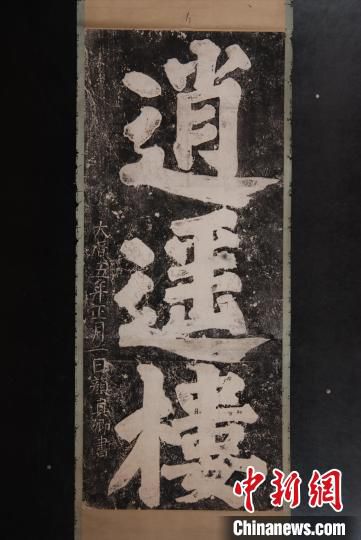 逍遥樓
大曆五年正月一日顏真卿書
中新网
Chinanews.com